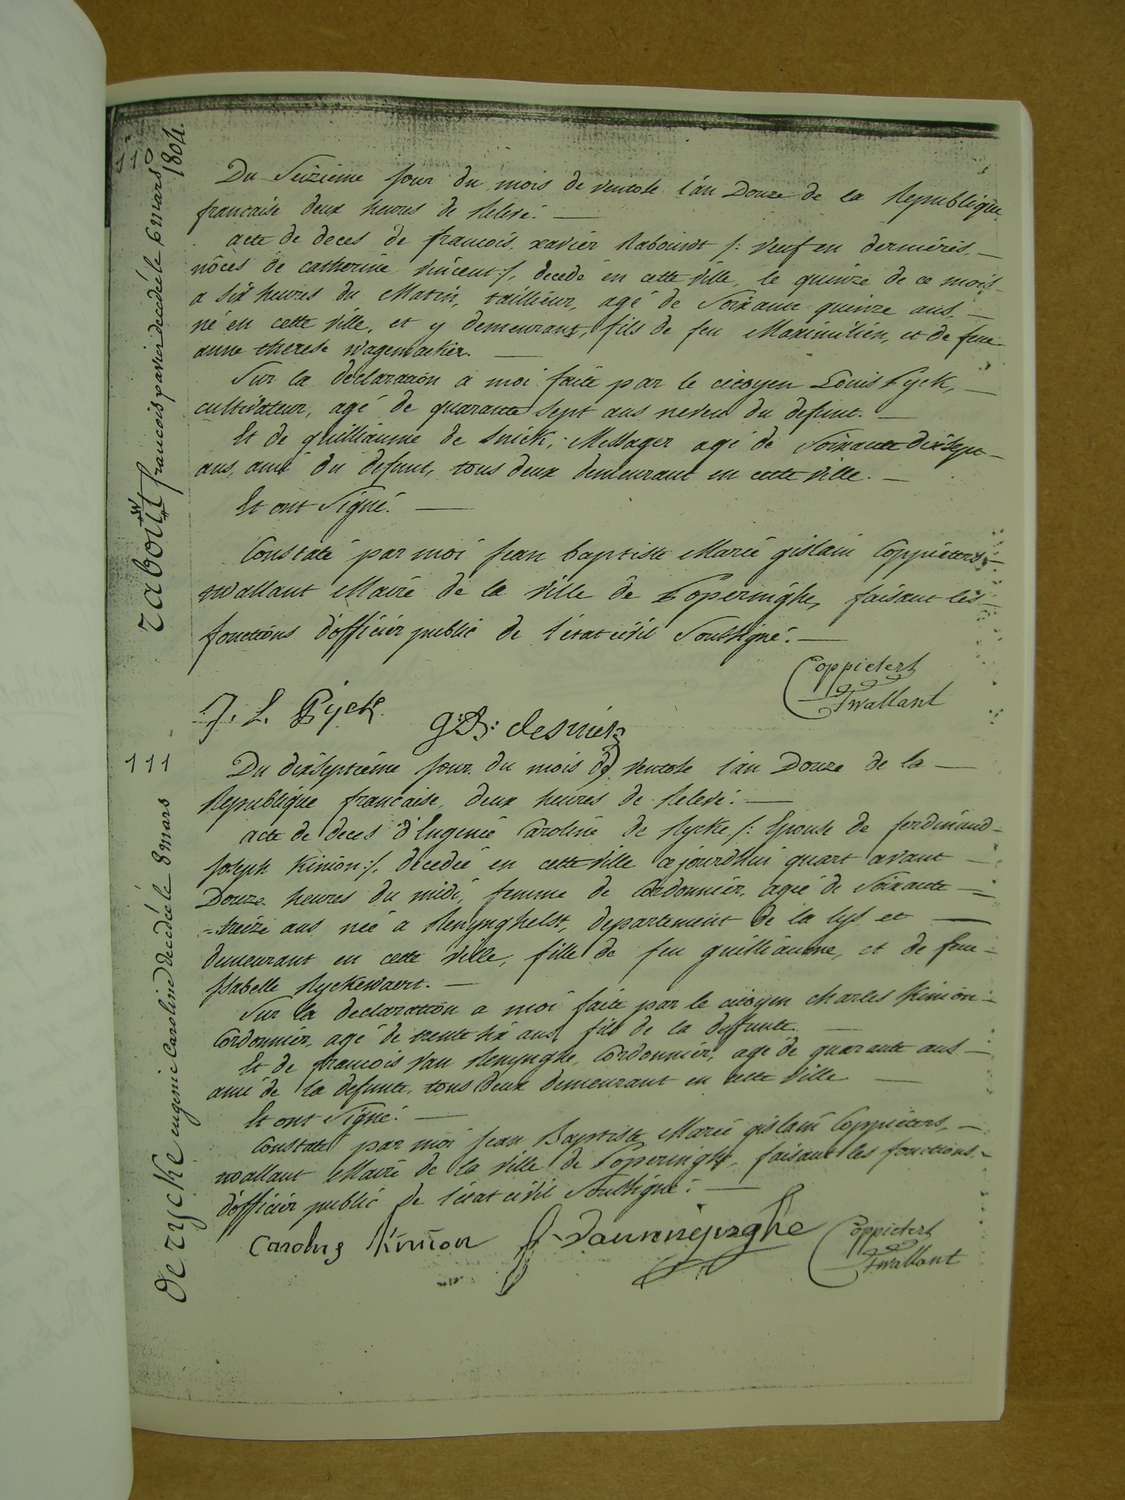 110
rabout françois xavier decedé le 6 mars 1804.
Du Seizieme jour du mois de ventose l'an Douze de la Republique
francaise deux heures de Relevé. —
acte de deces de francois xavier Rabouwt /: veuf en derniéres —
nôces de catherine vincent :/ decedé en cette ville, le quinze de ce mois
a six heures du Matin, tailleur, agé de Soixante quinze ans —
né en cette ville, et y demeurant, fils de feu Maximilien, et de feue
anne therese wagemaeker. —
Sur la declaration a moi faite par le citoyen Louis Pyck, —
cultivateur, agé de quarante Sept ans neveu du defunt. —
Et de guilliaume de Snick, Messager agé de Soixante dix Sept —
ans, ami du defunt, tous deux demeurant en cette ville. —
Et ont Signé. —
Constaté par moi Jean baptiste Marie gislain Coppieters —
wallant Maire de la ville de Poperinghe, faisant les —
fonctions d'officier public de l'état civil Soussigné. —
Coppieters
Twallant
J. L. Pijck.
g:D: desniek
111
De rycke eugenie Caroline decedée le 8 mars
Du dixseptieme jour du mois de ventose l'an Douze de la —
Republique francaise, deux heures de Relevé. —
acte de deces d'Eugenie Caroline de Rycke /: Epouse de ferdinand —
Joseph Kinion :/ decedée en cette ville cejourdhui quart avant —
Douze heures du midi, femme de Cordonnier, agée de Soixante —
=treize ans née a Renynghelst, departement de la lys et —
demeurant en cette ville, fille de feu guilliaume, et de feue —
Isabelle Ryckewaert. —
Sur la declaration a moi faite par le citoyen charles Kinion —
Cordonnier, agé de trente six ans, fils de la defunte. —
Et de francois van Renynghe, Cordonnier, agé de quarante ans —
ami de la defunte, tous deux demeurant en cette ville —
Et ont Signé. —
Constaté par moi Jean Baptiste Marie gislain Coppieters —
wallant Maire de la ville de Poperinghe, faisant les fonctions —
d'officier public de l'état civil Soussigné. —
Carolus Kinion
Coppieters
Twallant